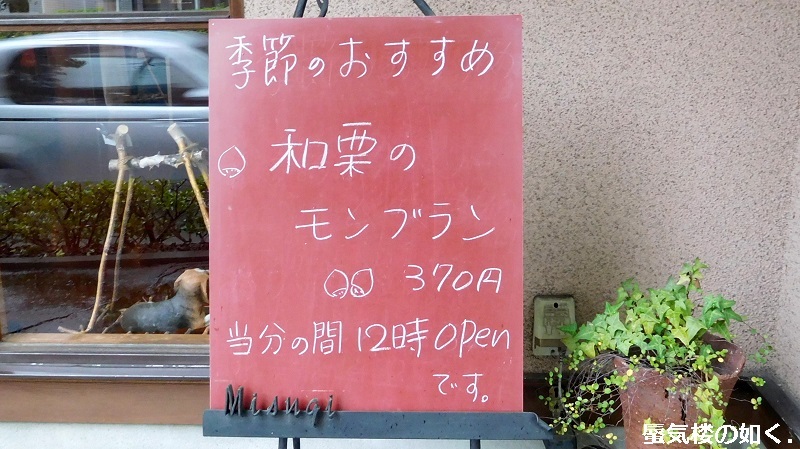 季節のおすすめ
和栗の
モンブラン
370円
当分の間12時open
です。
Misugi
蜃気楼の如く.